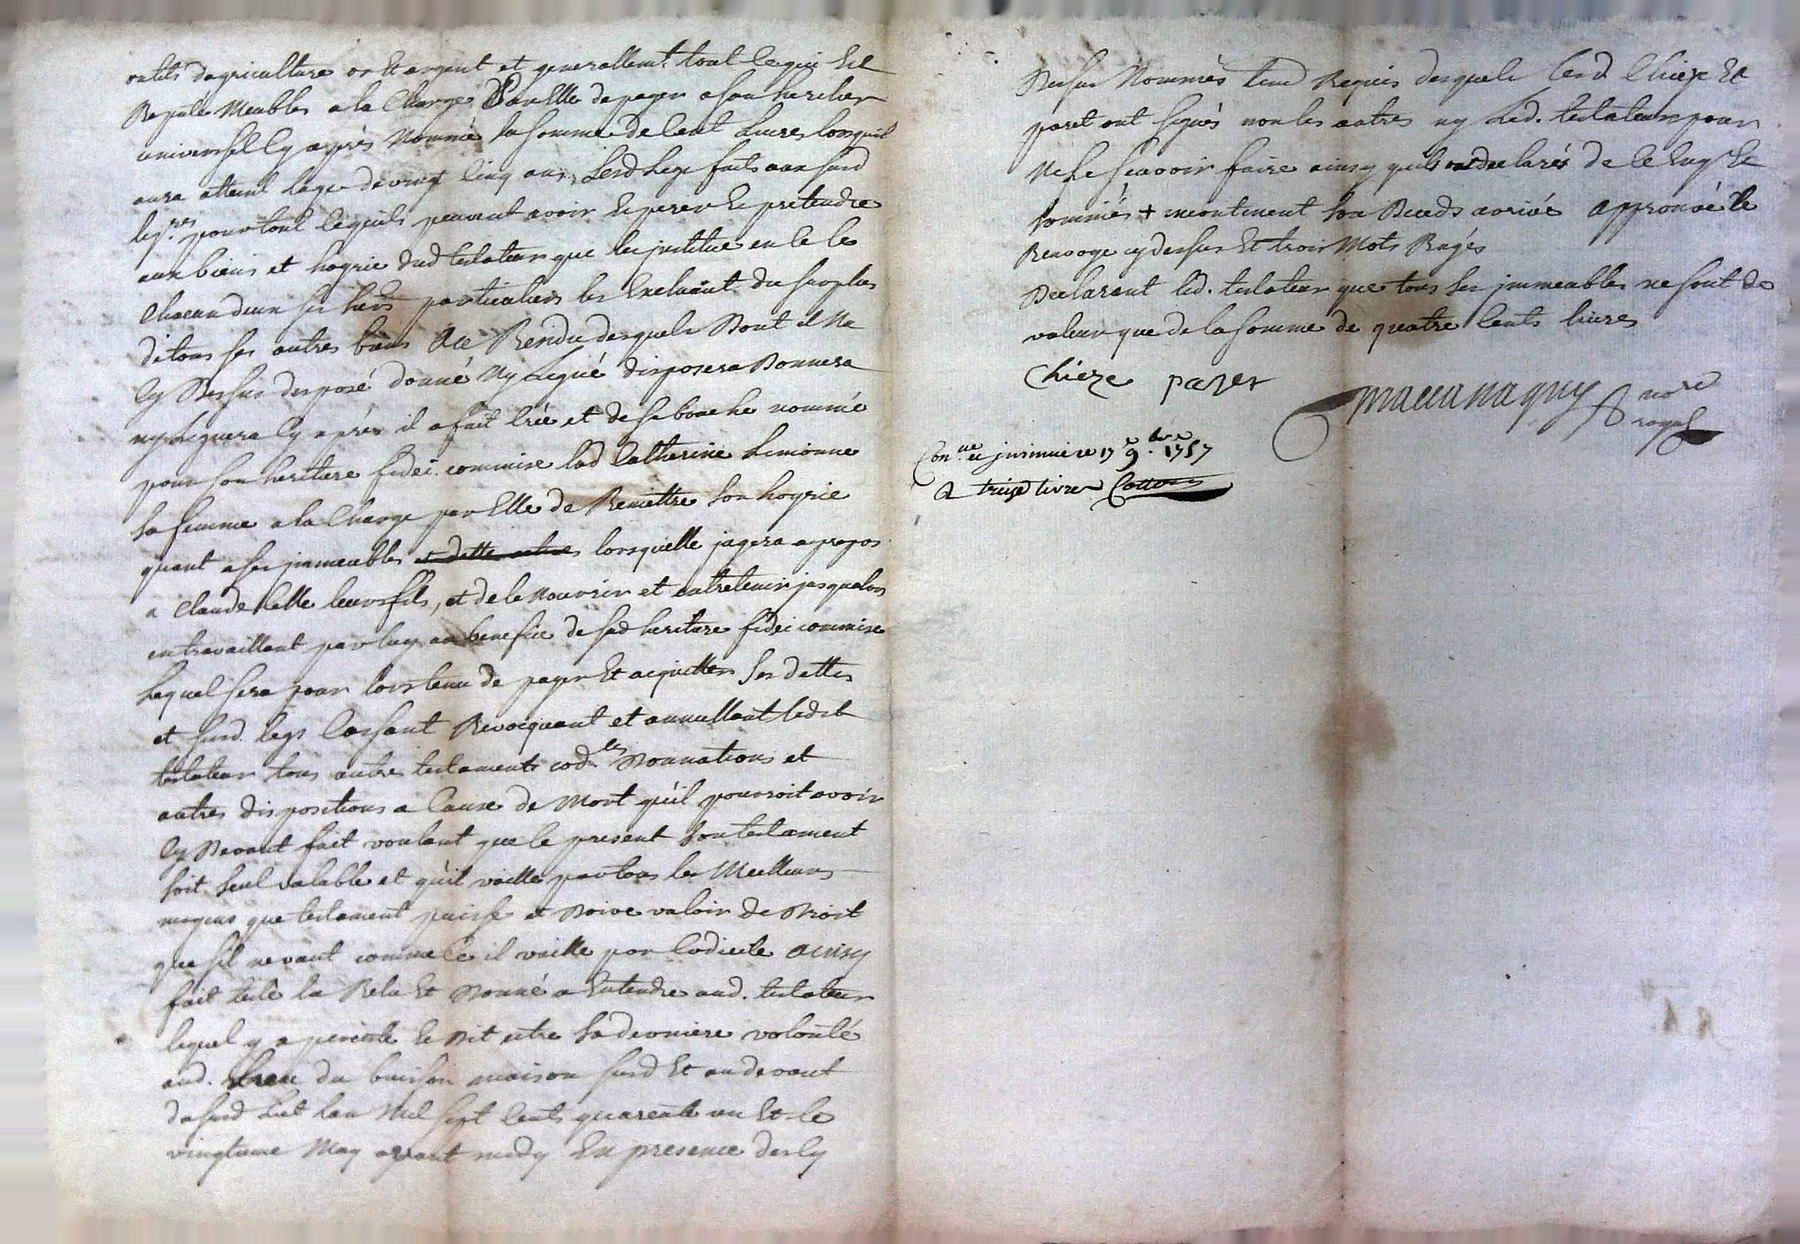 outils dagriculture or et argent et generallem.t tout ce qui est
Reputé Meubles a la Charge Par Elle de payer a son heritier
universel Cy apprés Nommé la Somme de Cent Livres lorsquil
aura atteint lage de vingt Cinq ans, Lesd Legs faits aux susd
leg.res pour tout ce quils peuvent avoir Esperer Et pretendre
aux biens et hoyrie dud testateur que les institue en ce le
Chacun deux ses hers particuliers les Excluant du surplus
de tous ses autres biens Au Residu desquels Dont il Na
Cy Dessus disposé donné Ny Legué disposera Donnera
ny Leguera Cy aprés il a fait Créé et de sa bouche nommé
pour son heritiere fidei commise lad Catherine Simonne
sa femme a la Charge par Elle de Remettre son hoyrie
quant a ses immeubles et dette actives lorsquelle jugera apropos
a Claude leur fils, et de le nourrir et entretenir jusqualors
en travaillant par luy au benefice de sad heritiere fidei commise
Lequel sera pour lors tenu de payer Et acquitter Ses dettes
et susd. legs Cassant Revocquant et annullant ledit
testateur tous autres testaments cod.lles Donnations et
autres dispositions a Cause de Mort qu'il pourroit avoir
Cy Devant fait voulant que le present Son testament
soit seul valable et qu'il vaille par tous les Meilleurs
moyens que testament puisse et Doive valoir de Droit
que sil ne vaut comme Ce il vaille par Codicile ainsy
fait testé la Relu Et Donné a Entendre aud. testateur
lequel y a percisté Et Dit estre Sa derniere volonté
aud. Lieu du buisson maison susd Et au devant
du susd Lict lan Mil Sept Cents quarente un Et le
vingtieme May avant midy En presence des Cy
Dessus Nommés tem.s Requis desquels Lesd. Chieze Et
payet ont signés non les autres ny Led. testateur pour
Ne Le scavoir faire ainsy quils ont declarés de ce Enq.s Et
sommés + incontinent son Deceds arrivé approuvé le
Renvoye cy dessus Et trois Mots Rayés
Declarant led. testateur que tous ses immeubles ne sont de
valeur que de la Somme de quatre Cents livres
Chieze payet
maccanaguy no.re
royal
Con.lle et insinué ce 17e 9.bre 1757
a treize livres